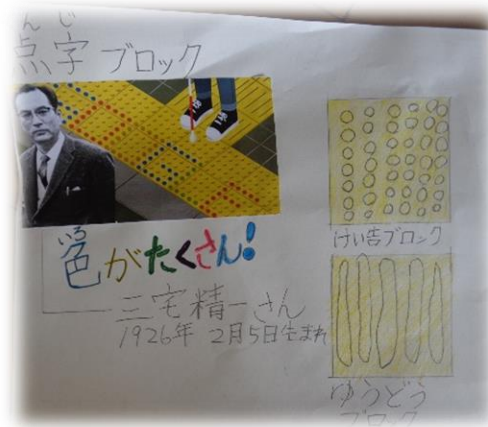 んじ
点字ブロック
いろ
色がたくさん!
三宅精一さん
1926年 2月5日生まれ
けい告ブロック
ゆうどう
ブロック